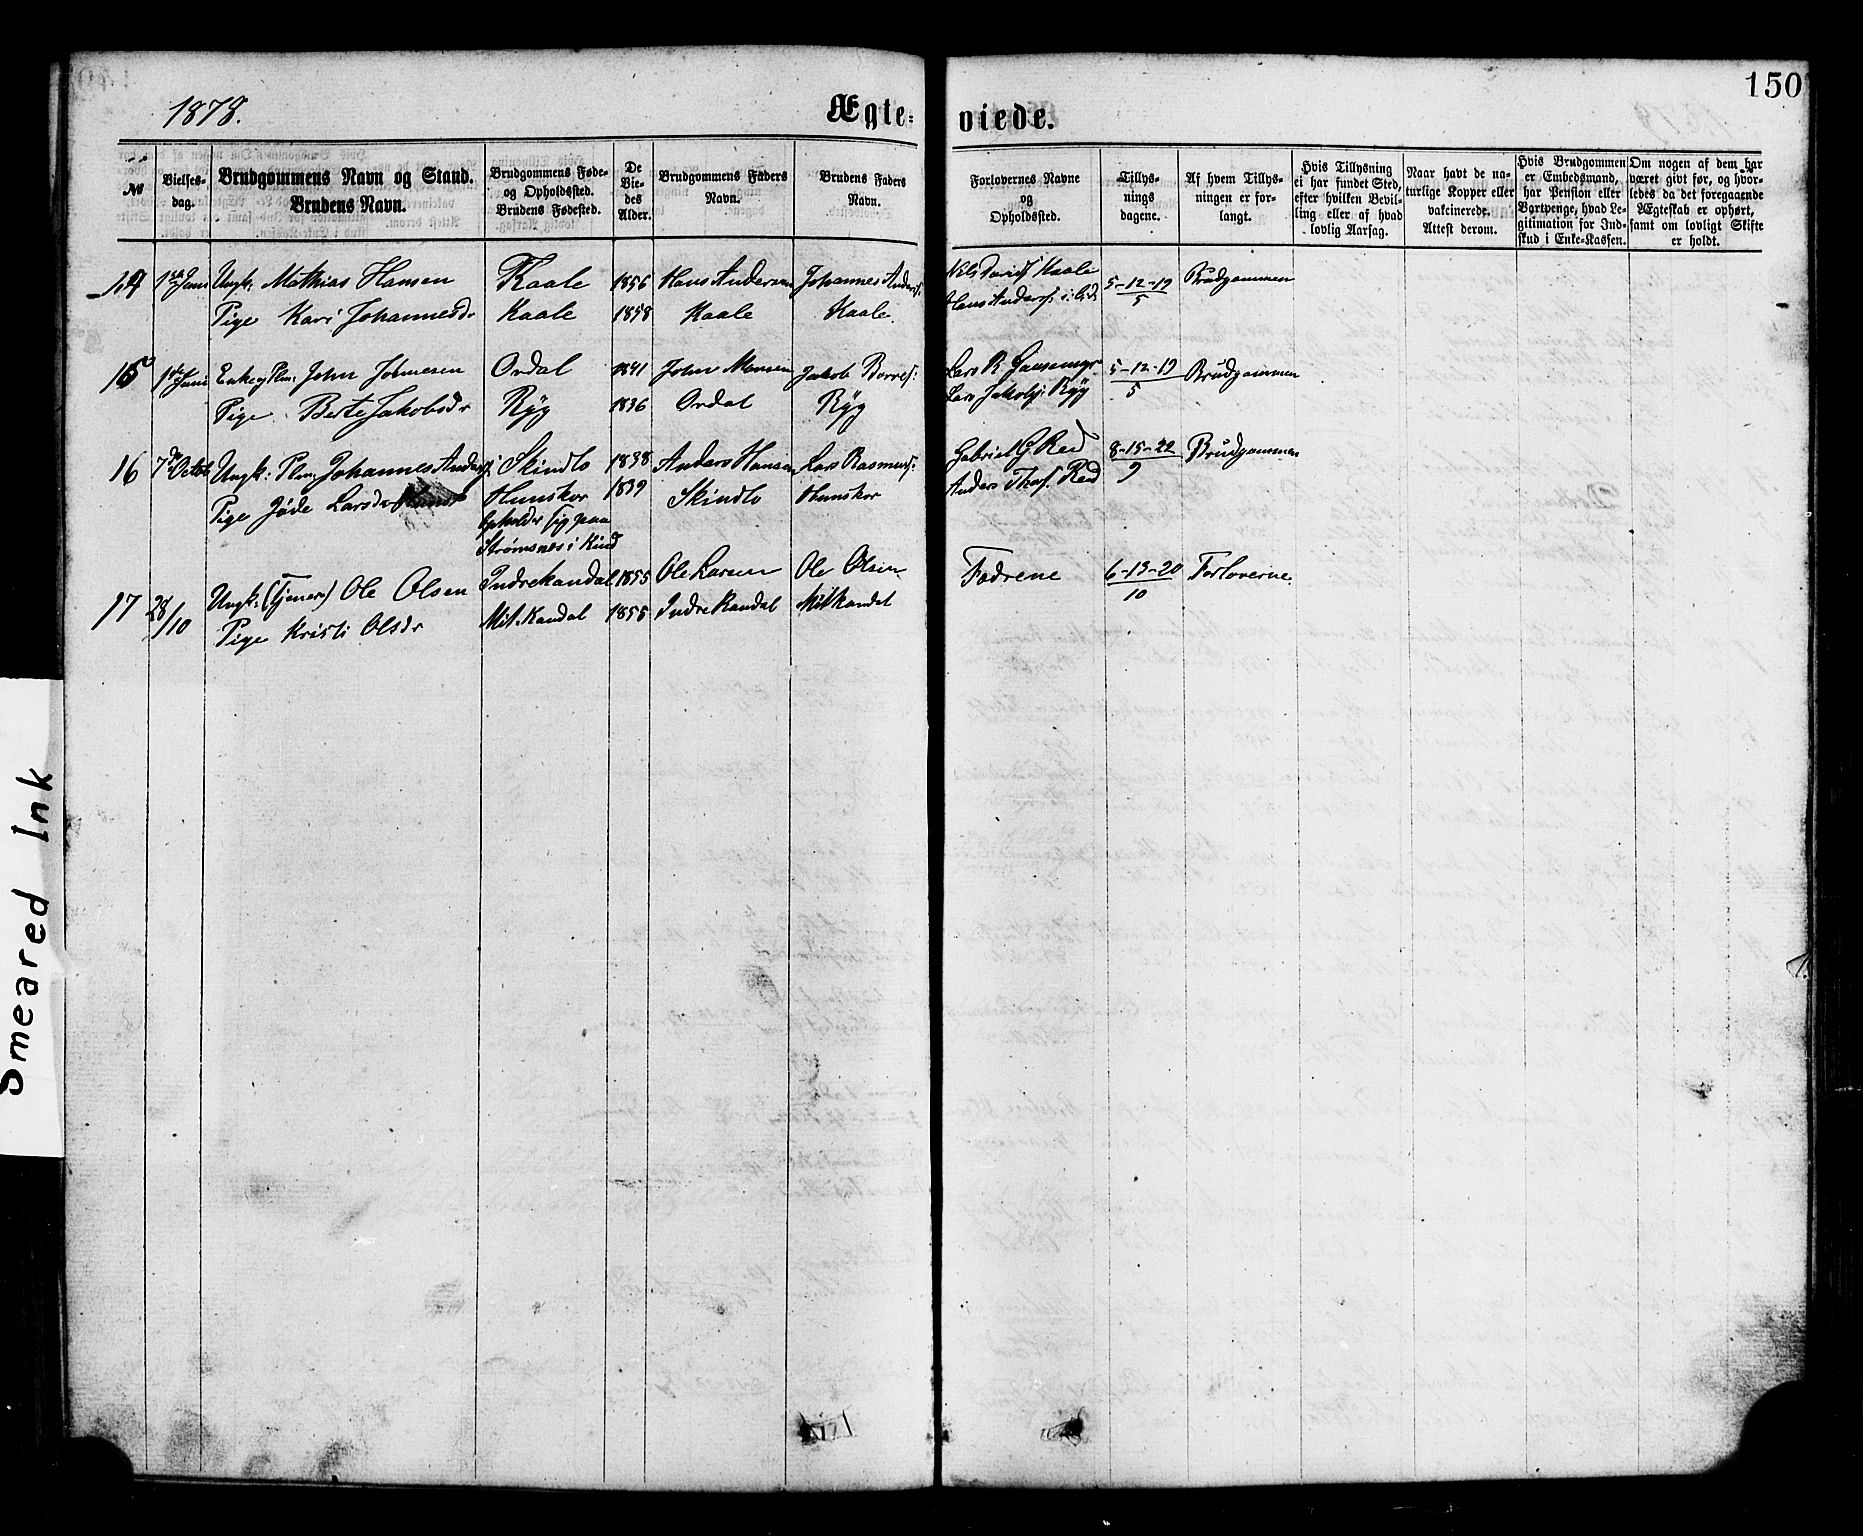 150
1878.
Ægte=
viede.
№
Vielses-
dag.
Brudgommens Navn og Stand.
Brudens Navn.
Brudgommens Føde-
og Opholdssted.
Brudens Fødested.
De
Vie-
des
Alder.
Brudgommens Faders
Navn.
Brudens Faders
Navn.
Forlovernes Navne
og
Opholdssted.
Tillys-
nings
dagene.
Af hvem Tillys-
ningen er for-
langt.
Hvis Tillysning
ei har fundet Sted,
efter hvilken Bevil-
ling eller af hvad
lovlig Aarsag.
Naar havt de na-
turlige Kopper eller
vakcinerede.
Attest derom.
Hvis Brudgommen
er Embedsmand,
har Pension eller
Vartpenge, hvad Le-
gitimation for Ind-
skud i Enke-Kassen.
Om nogen af dem har
været givt før, og hvor-
ledes da det foregaaende
Ægteskab er ophørt,
samt om lovligt Skifte
er holdt.
14 Juni Ungk: Mathias Hansen Kaale 1856 Hans Andersen Johannes Anders: Nils Kaale 5-12-19 Brudgommen
Pige Kari Johannesdr Kaale 1858 Kaale Kaale Hans Anders: 5
15 Juni John Ordal 1841 John Jakob Lars R 5-12-19 Brudgommen
Pige Berte Jakobsdr Ryg 1836 Ordal Ryg Lars Jakobs: Ryg 5
16 7de Octob Ungk: Plm: Johannes Anders: Skindlo 1838 Anders Hansen Lars Rasmus: Gabriel G Red 8-15-22 Brudgommen
Pige Larsdr Hunskor 1839 Skindlo Hunskor Anders Red 9
opholder sig paa
Strømsnes i Kind
17 28/10 Ungk: (Tjener) Ole Olsen Indrekandal 1855 Ole Larsen Ole Olsen Fædrene 6-13-20 Forloverne.
Pige Kristi Olsdr Mit-Kandal 1855 Indre Kandal Mitkandal 10
Smeared Ink